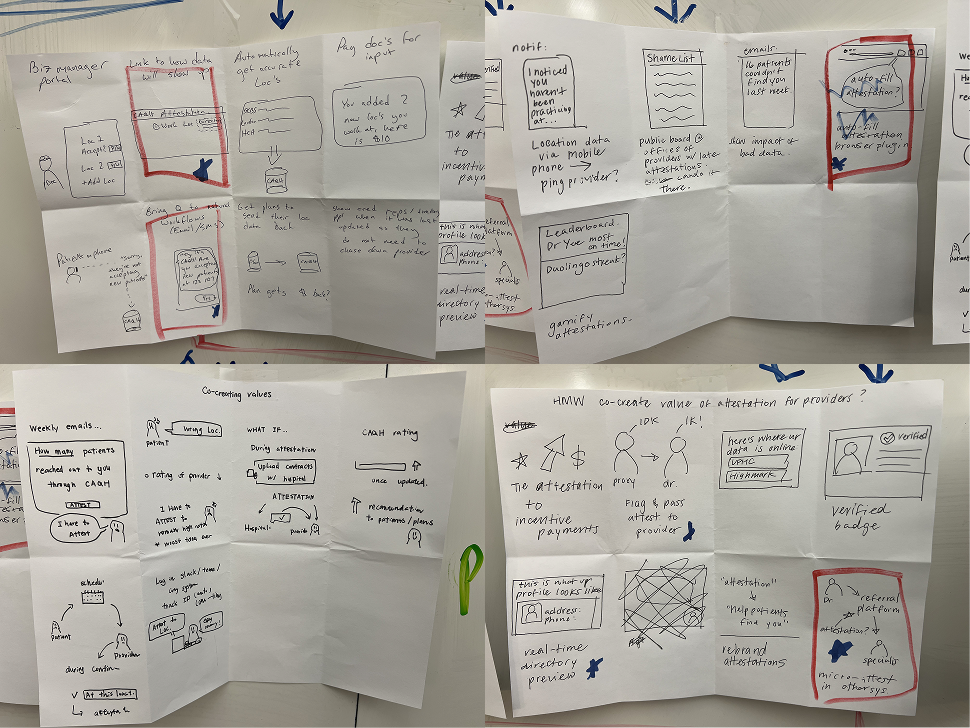 Biz manager
portal
Link to how data
will show up
Automatically
get accurate
Loc's
Pay doc's for
input
Loc 1
Accept?
Loc 2
+Add Loc
CAQH Attestation
Work Loc
CAQH
You added 2
new loc's you
work at, here
is $10
Bring Q to natural
workflows
(Email/SMS)
new patients
at 123 10th
Yes
Get plans to
send their loc
data back
Plan gets $ back?
updated so they
do not need to
chase down provider
Patients ephone
accepting
new patients"
CAQH
value
Tie a
to
incent
paym
this is wha
profile look
address
phone:
real-time
directory
preview
notif:
I noticed
you
haven't
been
practicing
at...
Location data
via mobile
phone →
ping provider?
Shame List
public board @
offices of
providers w/ late
attestations.
there.
emails:
16 patients
couldn't
find you
last week
show impact of
bad data.
auto-fill
attestation?
auto-fill
attestation
browser plugin
Leaderboard:
Dr Yue most
on time!
Duolingo streak?
gamify
attestations-
referral
platform
specialis
Co-creating values
Weekly emails...
How many patients
reached out to you
through CAQH
ATTEST
I have to
Attest
patient
Wrong Loc.
rating of provider ↓
I HAVE to
ATTEST to
remain high rating
WHAT IF...
During attestation
Upload contracts
w/ hospital
ATTESTATION
Hospital
provider
CAQH rating
once updated.
recommendation
to patients/plans
schedule
patient
provider
during confirm
At this loc.
↳ attested
Log in slack/teams/
any system
track IP
Attest to
Loc.
HMW co-create value of attestation for providers?
value
$
Tie attestation
to
incentive
payments
IDK
IK!
proxy
dr.
Flag & pass
attest to
provider
here's where ur
data is online
UPMC
Highmark
verified
verified
badge
this is what ur
profile looks like
address:
phone:
real-time
directory
preview
"attestation"
↓
"help patients
find you"
rebrand
attestations
Dr
referral
platform
attestation?
specialis
micro-attest
in other sys.